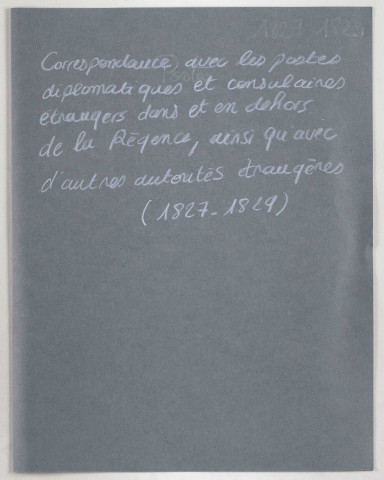 1827-1829
Correspondance avec les postes
diplomatiques et consulaires
étrangers dans et en dehors
de la Régence, ainsi qu'avec
d'autres autorités étrangères
(1827-1829)